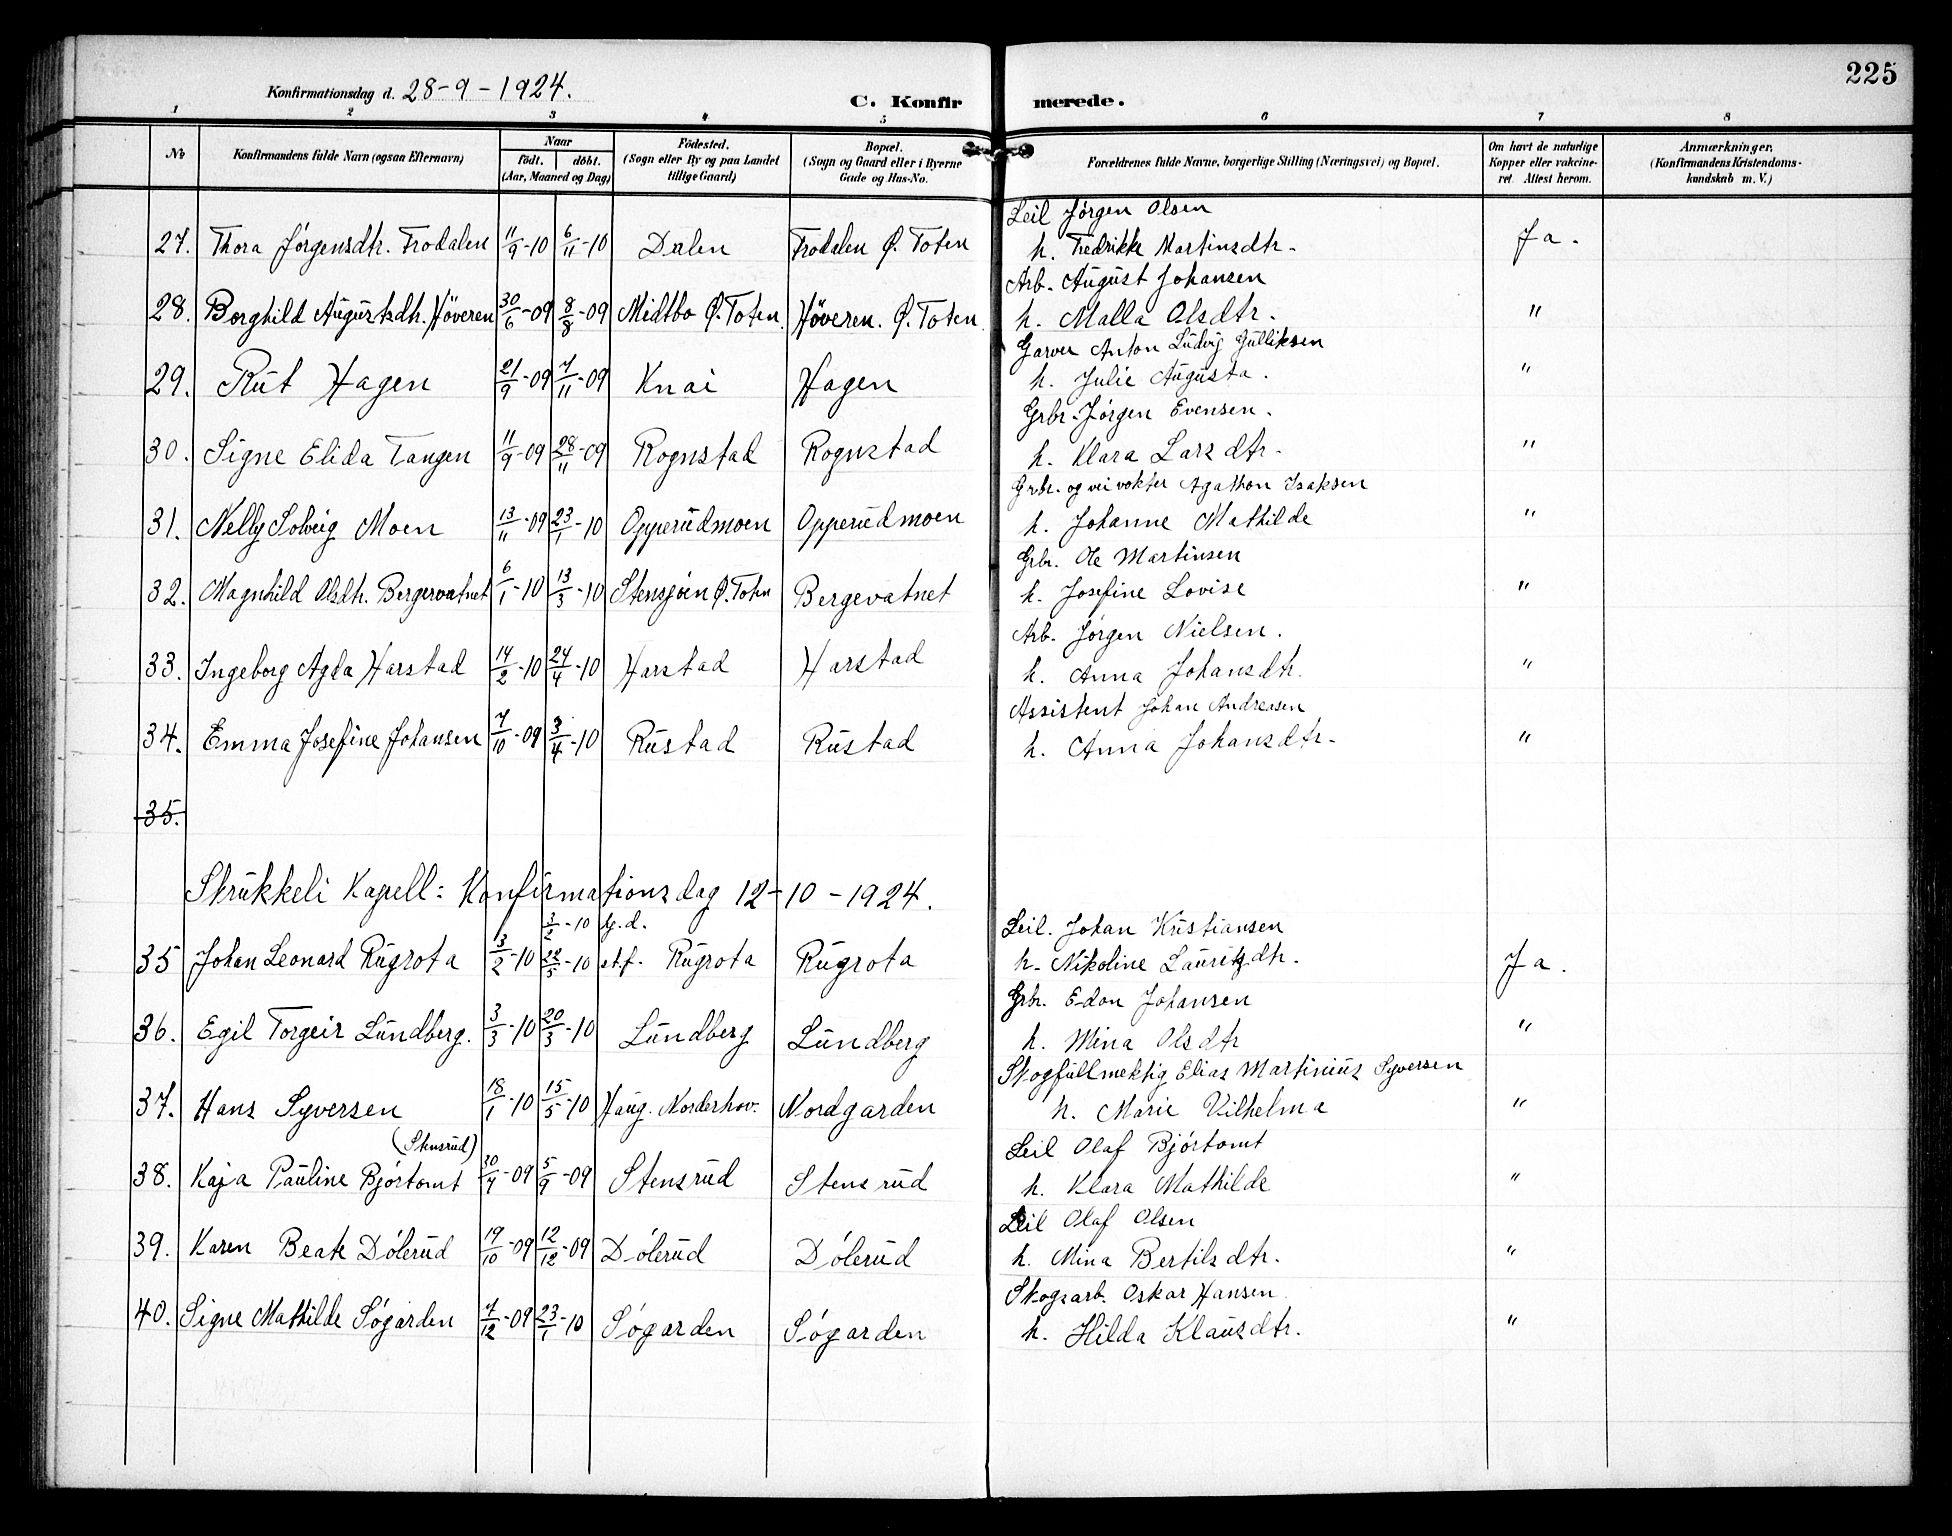 225
Konfirmationsdag d. 28-9-1924.
C. Konfirmerede.
1 2 3 4 5 6 7 8
No
Konfirmandens fulde Navn (ogsaa Efternavn)
Naar
födt. döbt.
(Aar, Maaned og Dag)
Födested.
(Sogn eller By og paa Landet
tillige Gaard)
Bopæl.
(Sogn og Gaard eller i Byerne
Gade og Hus-No.
Forældrenes fulde Navne, borgerlige Stilling (Næringsvei) og Bopæl.
Om havt de naturlige
Kopper eller vakcine-
ret. Attest herom.
Anmærkninger,
(Konfirmandens Kristendoms-
kundskab m. V.)
Leil Jørgen Olsen
27. Thora Jörgensdtr. Frodalen 11/9-10 6/11-10 Dalen Frodalen Ø. Toten h. Fredrikke Martinsdtr. Ja.
Arb. August Johansen
28. Borghild Augustsdtr. Höveren 30/6-09 8/8-09 Midtbo Ø. Toten. Höveren. Ø. Toten. h. Malla Olsdtr. "
Garver Anton Ludvig Gulliksen
29. Rut Hagen 21/9-09 7/11-09 Knai Hagen h. Julie Augusta. "
Grbr. Jörgen Evensen.
30. Signe Elida Tangen 11/9-09 28/11-09 Rognstad Rognstad h. Klara Larsdtr. "
Grbr. og veivokter Agathon Isaksen
31. Nelly Solveig Moen 13/11-09 23/1-10 Opperudmoen Opperudmoen h. Johanne Mathilde "
Grbr. Ole Martinsen
32. Magnhild Olsdtr. Bergervatnet 6/1-10 13/3-10 Stensjøen Ø. Toten Bergevatnet h. Josefine Lovise "
Arb. Jørgen Nielsen.
33. Ingeborg Agda Harstad 14/2-10 24/4-10 Harstad Harstad h. Anna Johansdtr. "
Assistent Johan Andreasen
34. Emma Josefine Johansen 7/10-09 3/4-10 Rustad Rustad h. Anna Johansdtr. "
35.
Strukkeli Kapell: Konfirmationsdag 12-10-1924.
3/2-10 hj.d. Leil. Johan Kristiansen
35 Johan Leonard Rugrota 3/2-10 22/5-10 st.f. Rugrota Rugrota h. Nikoline Lauritzdtr. Ja.
Grbr. Edon Johansen
36. Egil Torgeir Lundberg. 3/3-10 20/3-10 Lundberg Lundberg h. Mina Olsdtr "
Skogfullmektig Elias Martinius Syversen
37. Hans Syversen 18/1-10 15/5-10 Haug. Norderhov. Nordgarden h. Marie Vilhelma "
(Stensrud) Leil Olaf Bjórtomt
38. Kaja Pauline Bjórtomt 30/7-09 5/9-09 Stensrud Stensrud h. Klara Mathilde "
Leil Olaf Olsen
39. Karen Beate Dólerud 19/10-09 12/12-09 Dólerud Dólerud h. Mina Bertilsdtr. "
Skogsarb. Oskar Hansen
40. Signe Mathilde Sógarden 7/12-09 23/1-10 Sógarden Sógarden h. Hilda Klausdtr. "